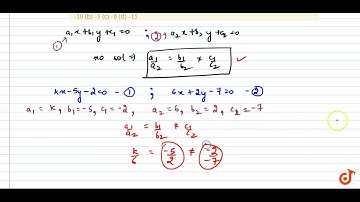 -10 (b) -5 (c) -6 (d) -15
① a₁x+b₁y+c₁=0 ; ② a₂x+b₂y+c₂=0
no solⁿ) → a₁/a₂ = b₁/b₂ ≠ c₁/c₂ ✓
kx-5y-2=0 - ① ; 6x+2y-7=0 - ②
a₁ = k, b₁=-5, c₁=-2, a₂=6, b₂=2, c₂=-7
a₁/a₂ = b₁/b₂ ≠ c₁/c₂
k/6 = -5/2 ≠ -2/-7